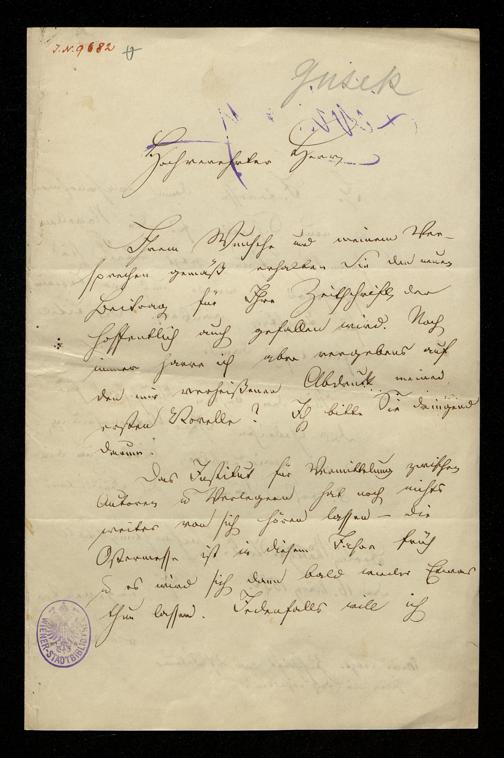 J.N. 9682
Gusek
Hochverehrter Herr
Ihrem Wunsche und meinem Ver-
sprechen gemäß erhalten Sie den neuen
Beitrag für Ihre Zeitschrift, der
hoffentlich auch gefallen wird. Noch
immer harre ich aber vergebens auf
den mir verheißenen Abdruck meiner
ersten Novelle? Ich bitte Sie dringend
darum.
Das Institut für Vermittelung zwischen
Autoren u Verlegern hat noch nichts
weiter von sich hören lassen – die
Ostermesse ist in diesem Jahre früh
u es wird sich dann bald wieder Etwas
thun lassen. Jedenfalls will ich
WIENER-STADTBIBLIOTHEK